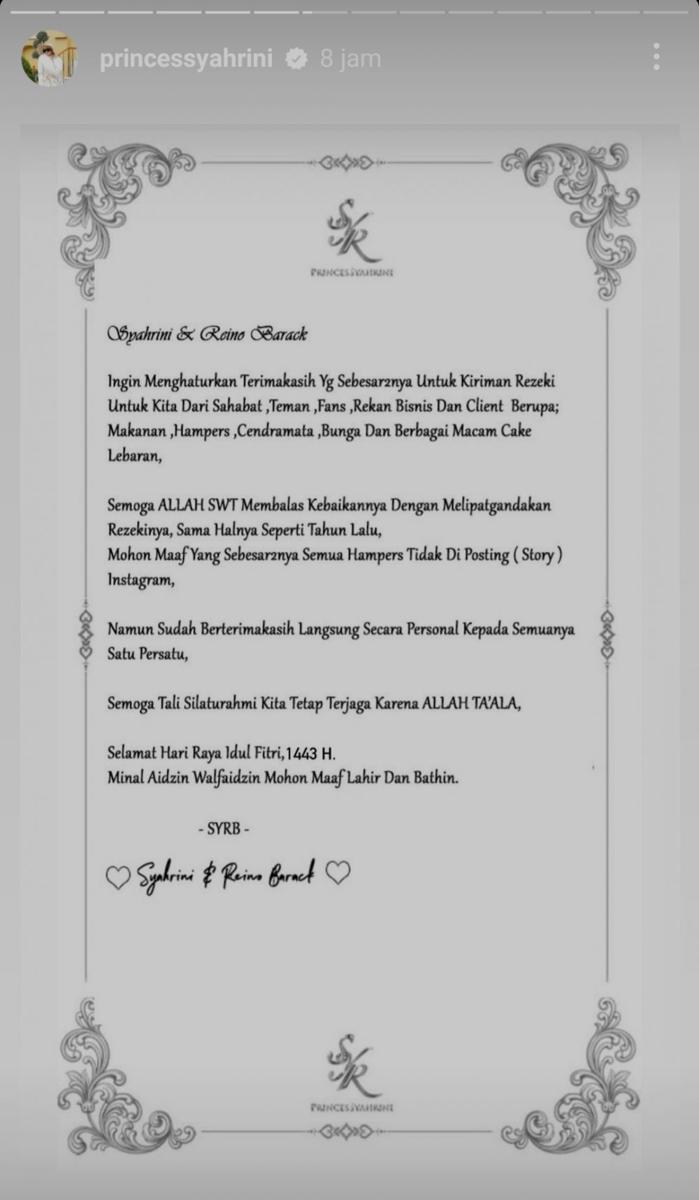 princessyahrini 8 jam
SR
PRINCESSYAHRINI
Syahrini & Reino Barack
Ingin Menghaturkan Terimakasih Yg Sebesar2nya Untuk Kiriman Rezeki
Untuk Kita Dari Sahabat ,Teman ,Fans ,Rekan Bisnis Dan Client Berupa;
Makanan ,Hampers ,Cendramata ,Bunga Dan Berbagai Macam Cake
Lebaran,
Semoga ALLAH SWT Membalas Kebaikannya Dengan Melipatgandakan
Rezekinya, Sama Halnya Seperti Tahun Lalu,
Mohon Maaf Yang Sebesar2nya Semua Hampers Tidak Di Posting ( Story )
Instagram,
Namun Sudah Berterimakasih Langsung Secara Personal Kepada Semuanya
Satu Persatu,
Semoga Tali Silaturahmi Kita Tetap Terjaga Karena ALLAH TA'ALA,
Selamat Hari Raya Idul Fitri,1443 H.
Minal Aidzin Walfaidzin Mohon Maaf Lahir Dan Bathin.
- SYRB -
Syahrini & Reino Barack
SR
PRINCESSYAHRINI